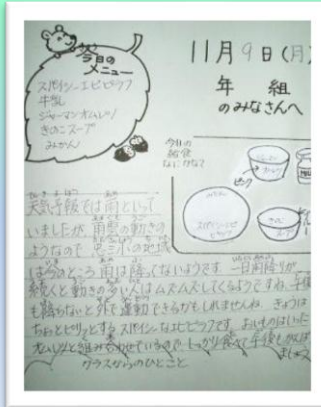 今日の
メニュー
スパイシーエビピラフ
牛乳
ジャーマンオムレツ
きのこスープ
みかん
11月9日(月)
年 組
のみなさんへ
今日の
給食
なにかな?
スパイシーエビ
ピラフ
きのこ
スープ
天気予報では雨といって
いましたが、雨雲の動きの
ようなので の地域
は今のところ雨は降ってないようです。一日雨降りが
続くと動きの多い人はムズムズしてくるようですね。午後
も降らないと外で運動できるかもしれませんね。きょうは
ちょっとピリッとするスパイシーなエビピラフです。おいものはいった
オムレツと組み合わせているので、しっかり食べて午後もがんば
りましょう
クラスからのひとこと